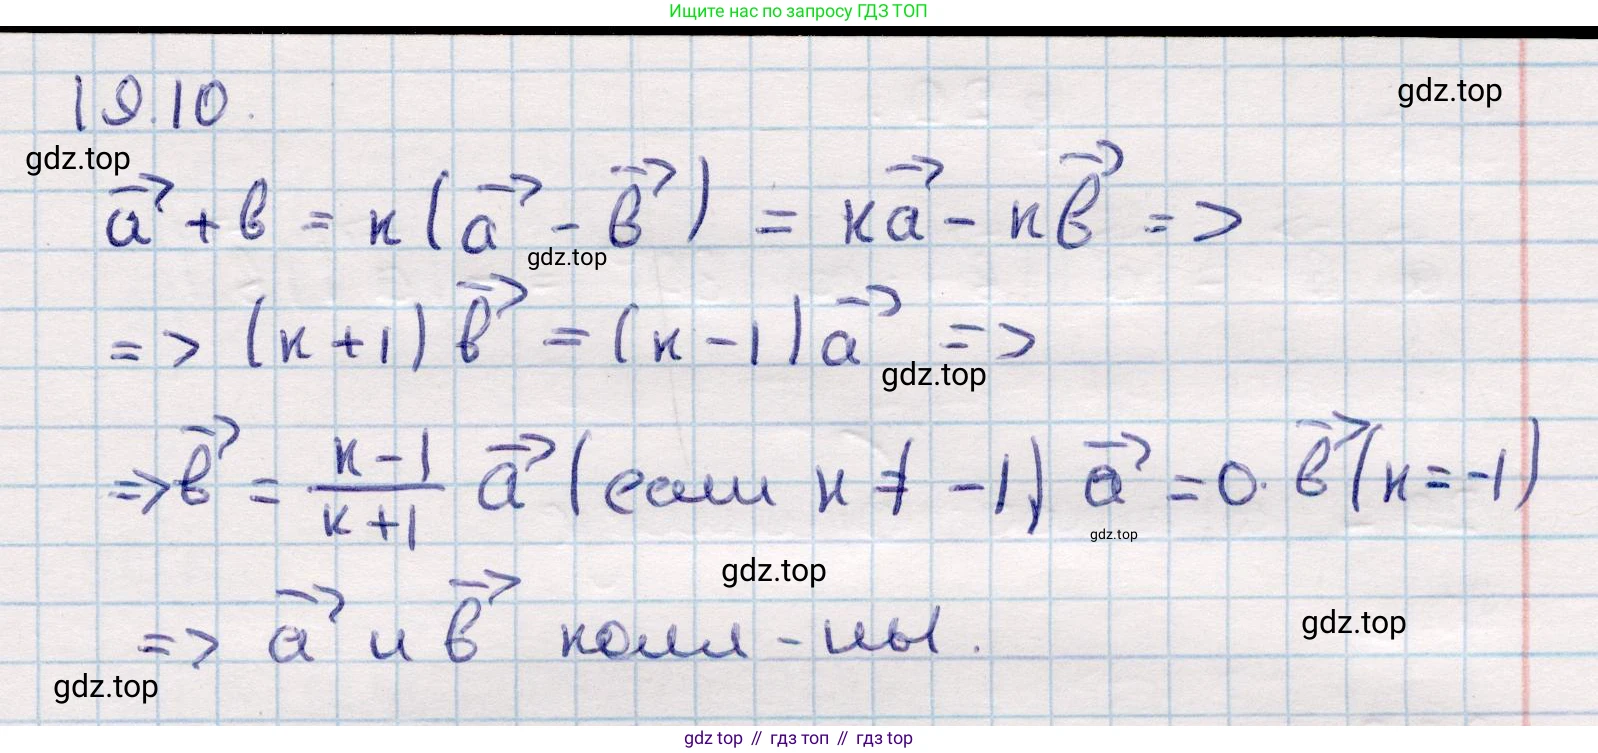 Ищите нас по запросу ГДЗ ТОП
19.10.
gdz.top
gdz.top
a⃗ + в = к(a⃗ - в⃗) = кa⃗ - кв⃗ =>
gdz.top
=> (к+1)в⃗ = (к-1)a⃗ =>
gdz.top
=> в⃗ = \frac{к-1}{к+1} a⃗ (если к ≠ -1) a⃗ = 0 · в⃗ (к = -1)
gdz.top
gdz.top
=> a⃗ и в⃗ колл-ны.
gdz.top
gdz.top
gdz top // гдз топ // гдз top